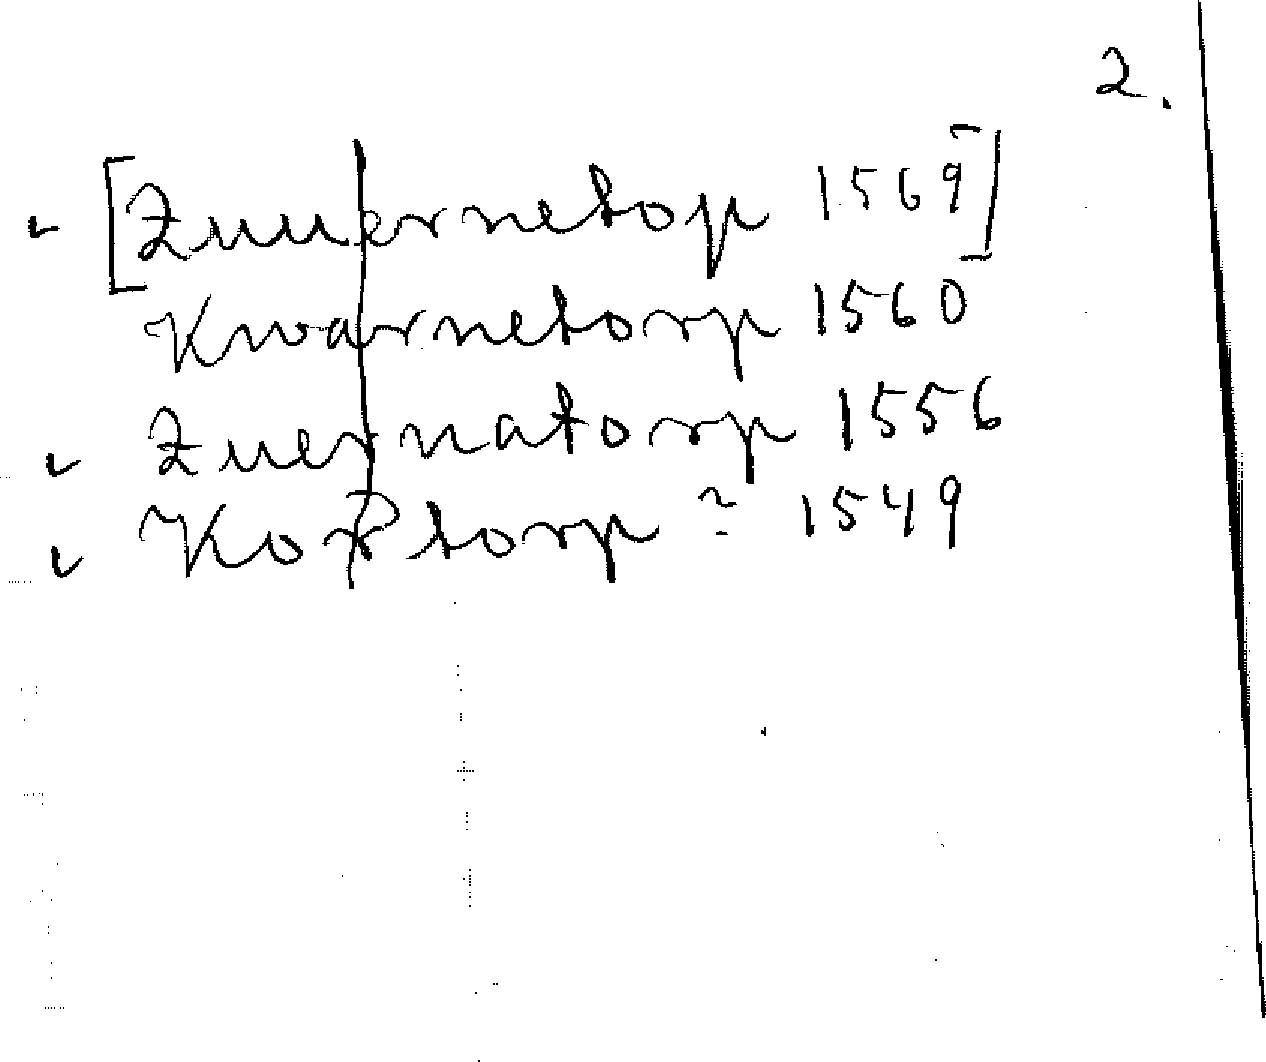 2.
[Zuuernetop 1569]
Kwarnetorp 1560
Zuernatorp 1556
torp ? 1549